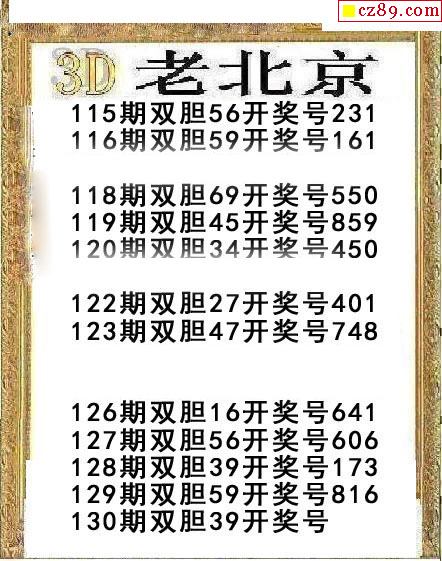 cz89.com
3D 老北京
115期双胆56开奖号231
116期双胆59开奖号161
118期双胆69开奖号550
119期双胆45开奖号859
120期双胆34开奖号450
122期双胆27开奖号401
123期双胆47开奖号748
126期双胆16开奖号641
127期双胆56开奖号606
128期双胆39开奖号173
129期双胆59开奖号816
130期双胆39开奖号